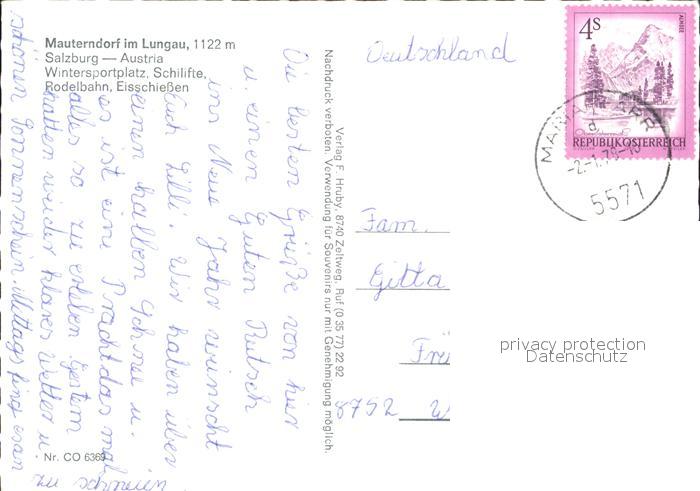 Mauterndorf im Lungau, 1122 m
Salzburg — Austria
Wintersportplatz, Schilifte,
Rodelbahn, Eisschießen
Die besten Grüße von hier
u. einen Guten Rutsch
ins Neue Jahr wünscht
Euch Lilli. Wir haben über
einen halben Schnee u.
es ist eine Pracht das mal
alles so zu erleben. Gestern
hatten wieder klares Wetter u.
schönen Sonnenschein. Mittags fing es an
zu schneien
Nr. CO 6369
Verlag F. Hruby, 8740 Zeltweg, Ruf (0 35 77) 22 92
Nachdruck verboten. Verwendung für Souvenirs nur mit Genehmigung möglich.
Deutschland
4S
ALMSEE
REPUBLIK ÖSTERREICH
MARIA
PFARR
-2.-1.79-10
5571
Fam.
Gitta
8752 W
privacy protection
Datenschutz